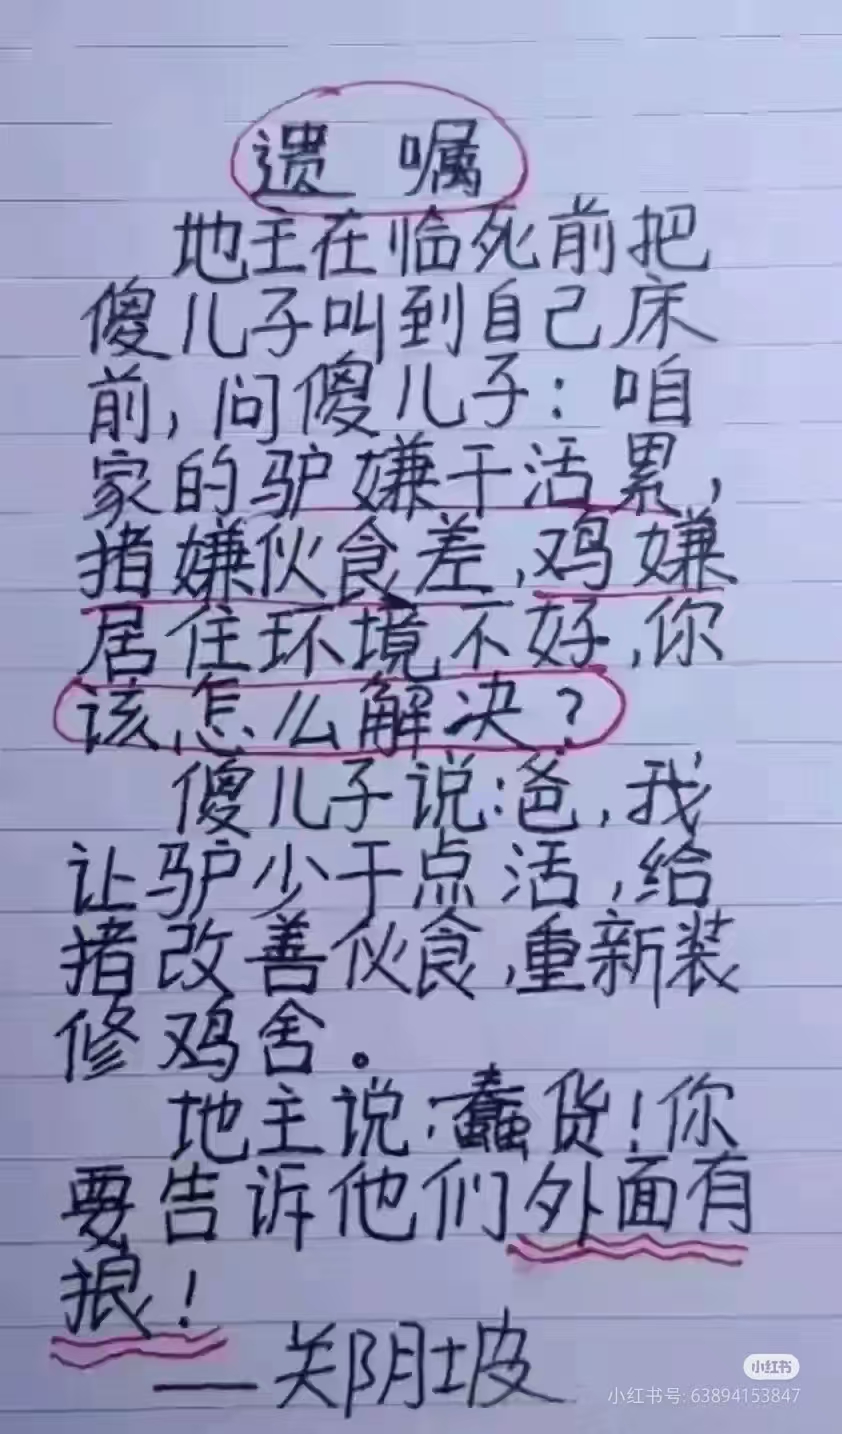 遗嘱
地主在临死前把
傻儿子叫到自己床
前,问傻儿子:咱
家的驴嫌干活累,
猪嫌伙食差,鸡嫌
居住环境不好,你
该怎么解决?
傻儿子说:爸,我
让驴少干点活,给
猪改善伙食,重新装
修鸡舍。
地主说:蠢货!你
要告诉他们外面有
狼!
——郑阴坡
小红书
小红书号: 63894153847